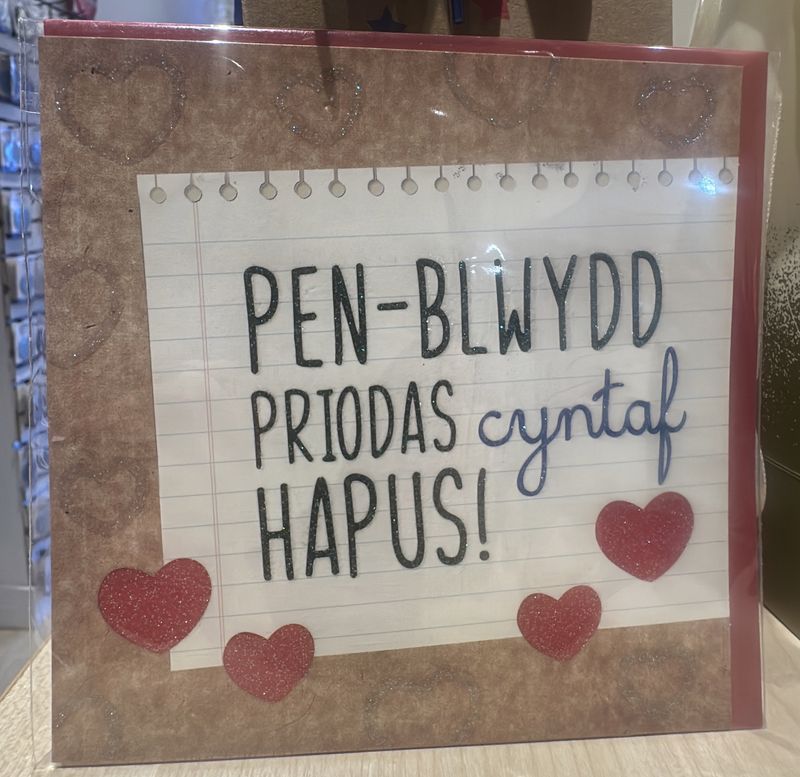 PEN-BLWYDD
PRIODAS cyntaf
HAPUS!